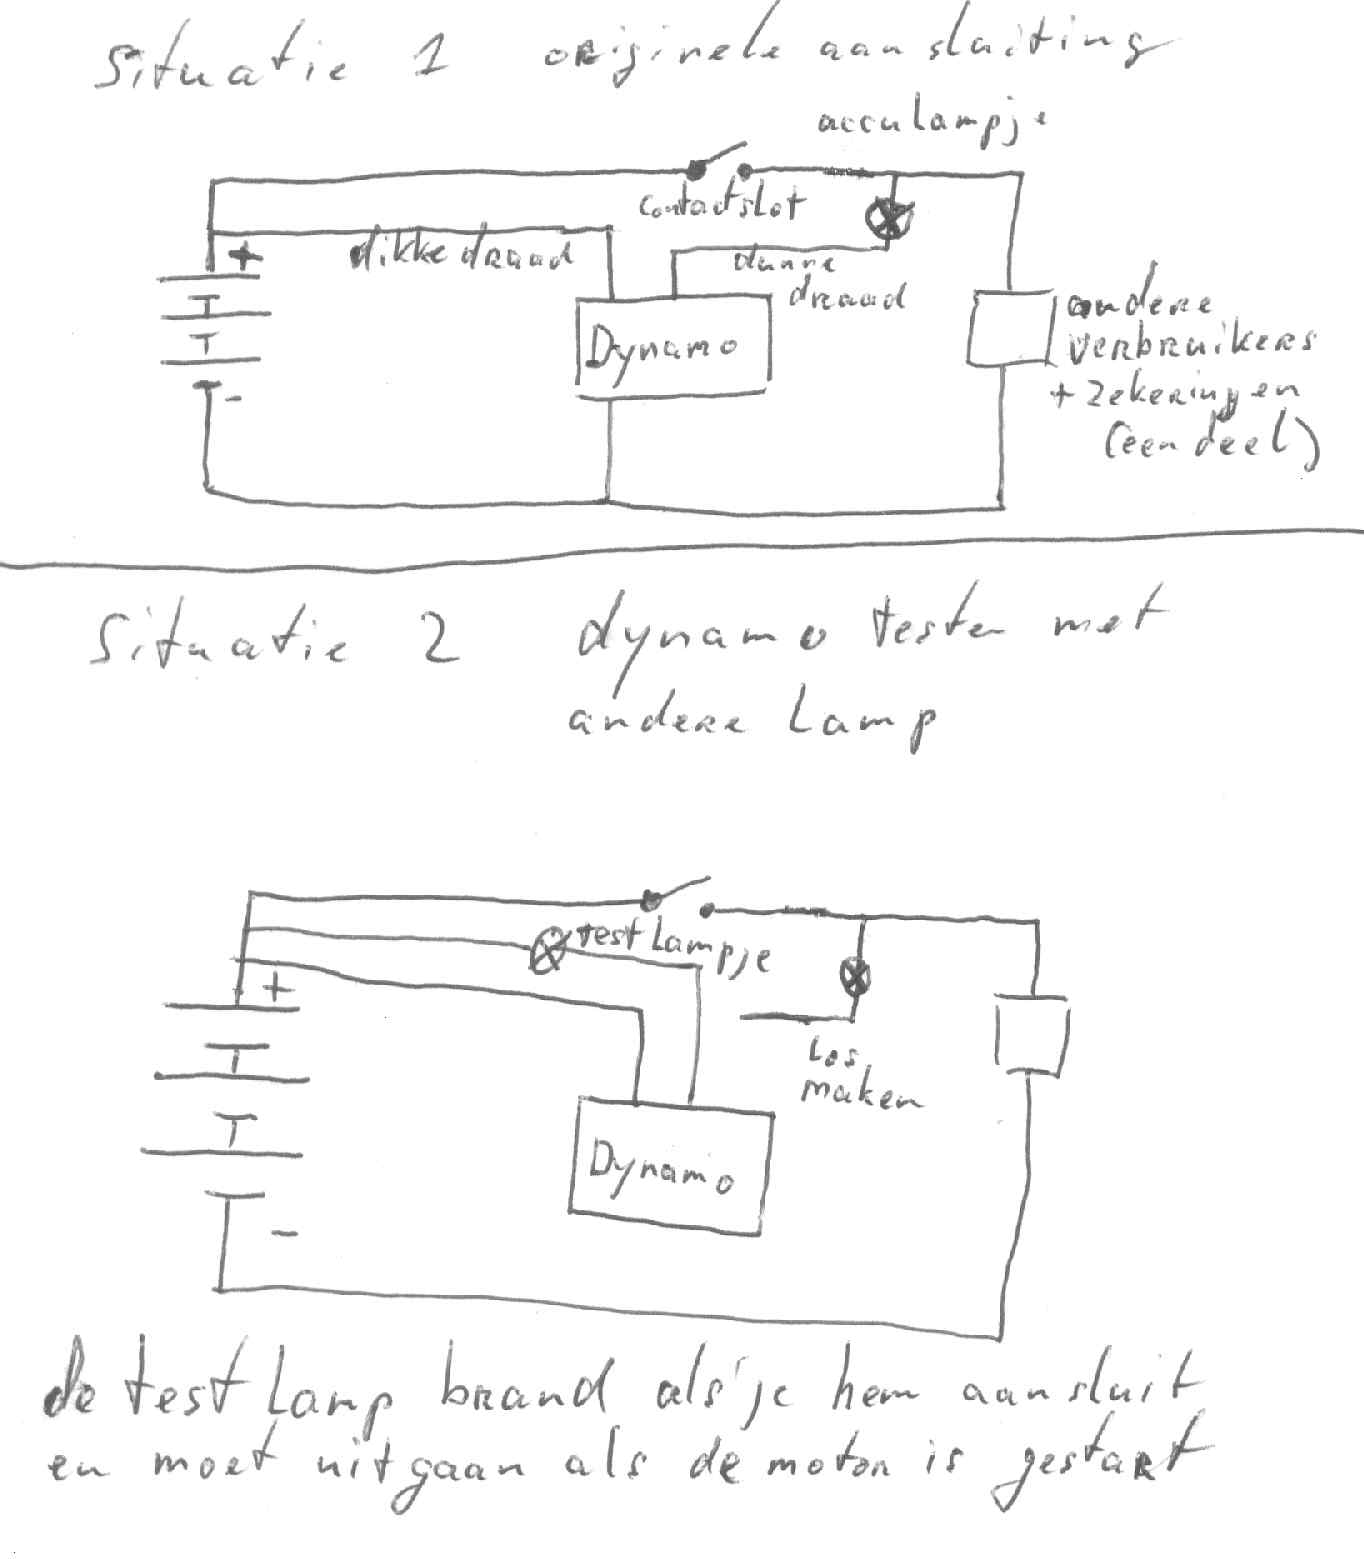 Situatie 1 originele aansluiting
acculampje
contactslot
+ dikke draad
dunne
draad
Dynamo
andere
verbruikers
+ zekeringen
(een deel)
-
Situatie 2 dynamo testen met
andere lamp
testlampje
+
los
maken
Dynamo
-
de testlamp brand als je hem aansluit
en moet uitgaan als de motor is gestart